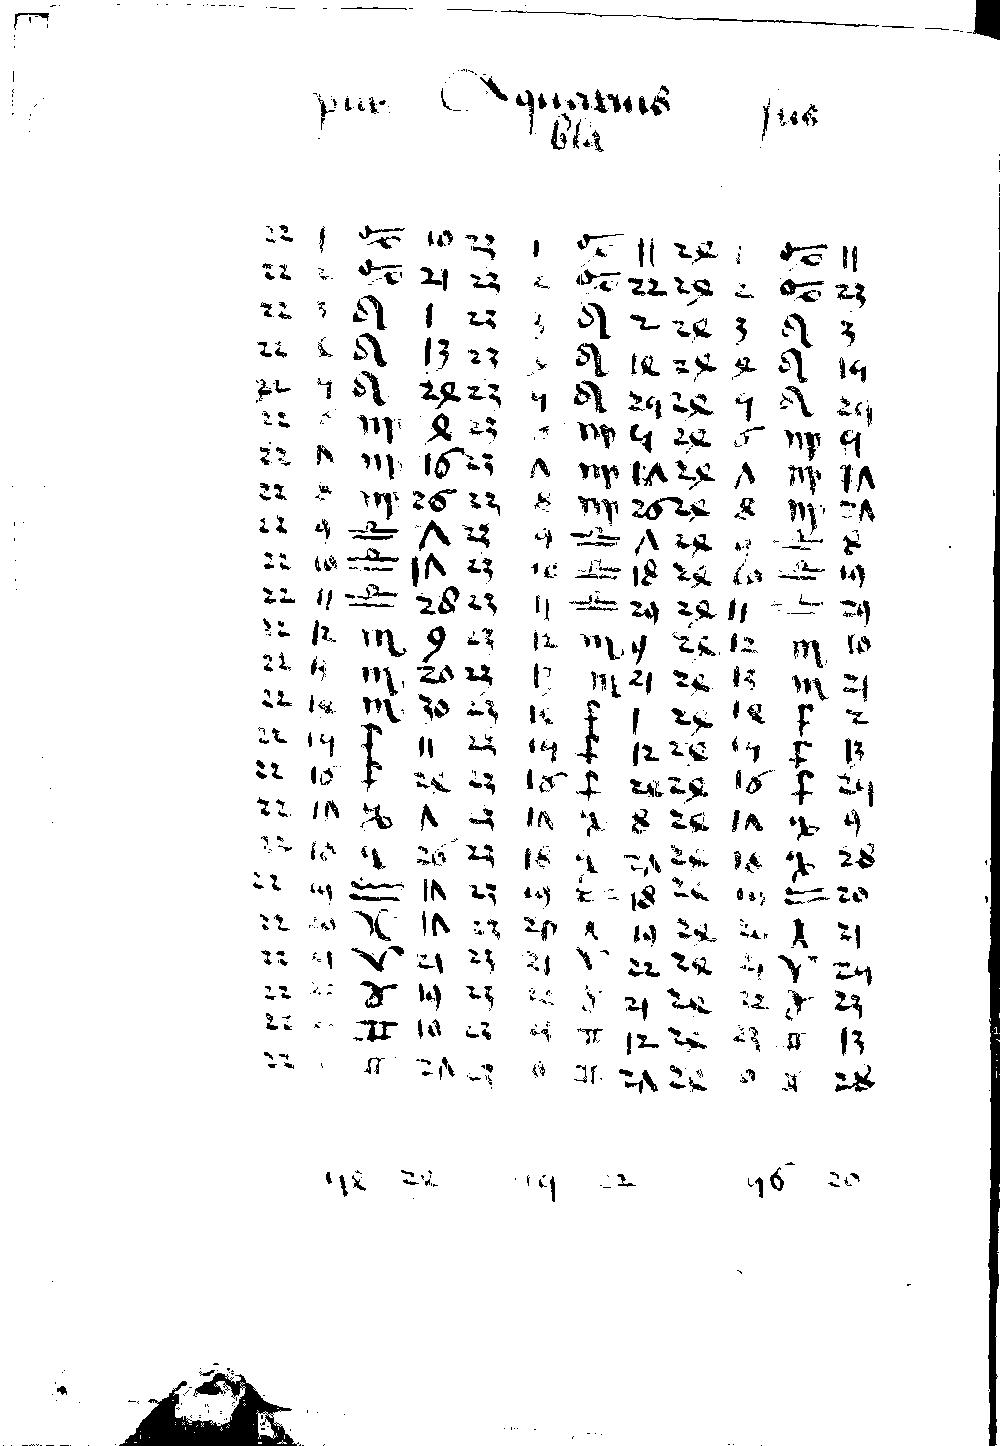 pur Aquarius sus
bla
22 1 ♋ 10 23 1 ♋ 11 24 1 ♋ 11
22 2 ♋ 21 23 2 ♋ 22 24 2 ♋ 23
22 3 ♌ 1 23 3 ♌ 2 24 3 ♌ 3
22 4 ♌ 13 23 4 ♌ 14 24 4 ♌ 15
22 5 ♌ 24 23 5 ♌ 25 24 5 ♌ 25
22 6 ♍ 4 23 6 ♍ 5 24 6 ♍ 5
22 7 ♍ 16 23 7 ♍ 17 24 7 ♍ 17
22 8 ♍ 26 23 8 ♍ 26 24 8 ♍ 27
22 9 ♎ 7 23 9 ♎ 7 24 9 ♎ 8
22 10 ♎ 17 23 10 ♎ 18 24 10 ♎ 19
22 11 ♎ 28 23 11 ♎ 29 24 11 ♎ 29
22 12 ♏ 9 23 12 ♏ 9 24 12 ♏ 10
22 13 ♏ 20 23 13 ♏ 21 24 13 ♏ 21
22 14 ♏ 30 23 14 ♐ 1 24 14 ♐ 2
22 15 ♐ 11 23 15 ♐ 12 24 15 ♐ 13
22 16 ♐ 24 23 16 ♐ 24 24 16 ♐ 25
22 17 ♑ 7 23 17 ♑ 8 24 17 ♑ 9
22 18 ♑ 26 23 18 ♑ 27 24 18 ♑ 28
22 19 ♒ 17 23 19 ♒ 18 24 19 ♒ 20
22 20 ♓ 17 23 20 ♓ 19 24 20 ♓ 21
22 21 ♈ 21 23 21 ♈ 22 24 21 ♈ 25
22 22 ♉ 19 23 22 ♉ 21 24 22 ♉ 23
22 ♊ 10 23 ♊ 12 24 23 ♊ 13
22 ♊ 27 23 0 ♊ 27 24 0 ♊ 28
54 24 55 22 56 20